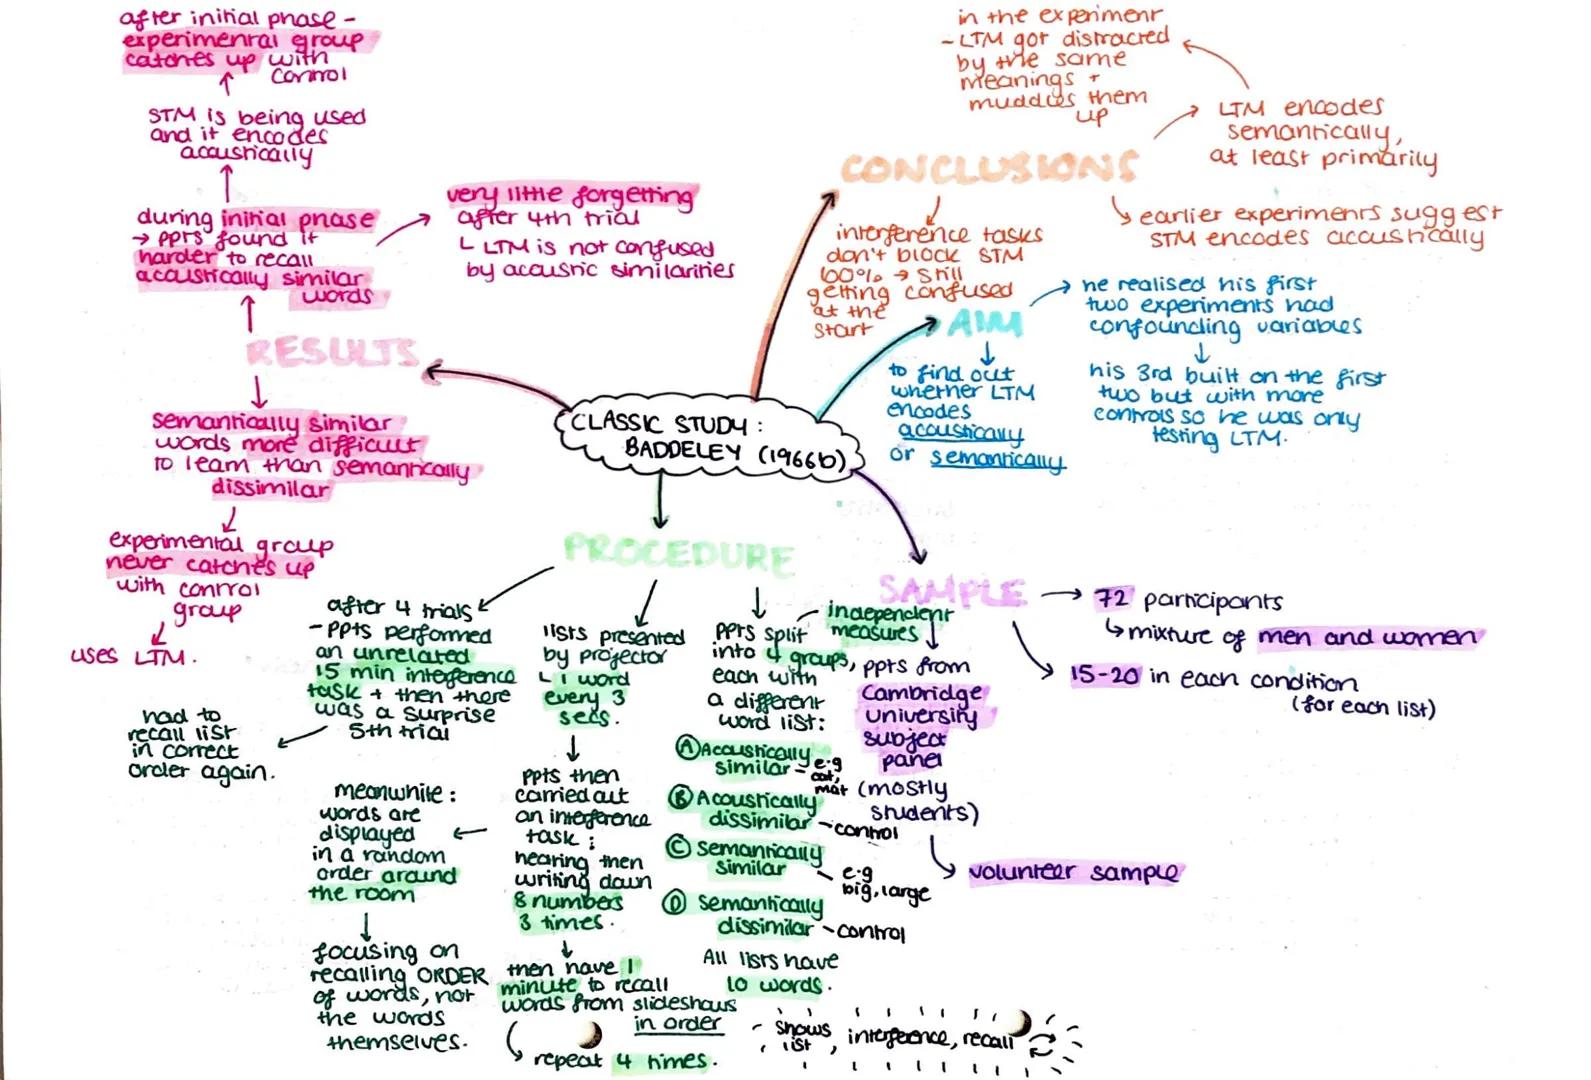 after initial phase -
experimental group
catches up with
control
STM is being used
and it encodes
acoustically
during initial phase
→ ppts found it
harder to recall
acoustically similar
words
very little forgetting
after 4th trial
└ LTM is not confused
by acoustic similarities
RESULTS
semantically similar
words more difficult
to learn than semantically
dissimilar
experimental group
never catches up
with control
group
uses LTM.
in the experiment
- LTM got distracted
by the same
meanings +
muddles them
up
LTM encodes
semantically,
at least primarily
CONCLUSIONS
earlier experiments suggest
STM encodes accustically
interference tasks
don't block STM
100% → still
getting confused
at the
start
AIM
he realised his first
two experiments had
confounding variables
his 3rd built on the first
two but with more
controls so he was only
testing LTM.
to find out
whether LTM
encodes
acoustically
or semantically
CLASSIC STUDY:
BADDELEY (1966b)
PROCEDURE
after 4 trials
- ppts performed
an unrelated
15 min interference
task + then there
was a surprise
5th trial
had to
recall list
in correct
order again.
lists presented
by projector
└ 1 word
every 3
secs.
ppts then
carried out
an interference
task:
hearing then
writing down
8 numbers
3 times.
meanwhile:
words are
displayed
in a random
order around
the room
focusing on
recalling ORDER
of words, not
the words
themselves.
then have 1
minute to recall
words from slideshows
in order
repeat 4 times.
independent
measures
ppts split
into 4 groups,
each with
a different
word list:
Ⓐ Acoustically
similar - e.g
cat,
mat
Ⓑ Acoustically
dissimilar - control
Ⓒ Semantically
similar - e.g
big, large
Ⓓ Semantically
dissimilar - control
All lists have
10 words.
shows
list, interference, recall
SAMPLE
72 participants
↳ mixture of men and women
15-20 in each condition
(for each list)
ppts from
Cambridge
university
subject
panel
(mostly
students)
volunteer sample